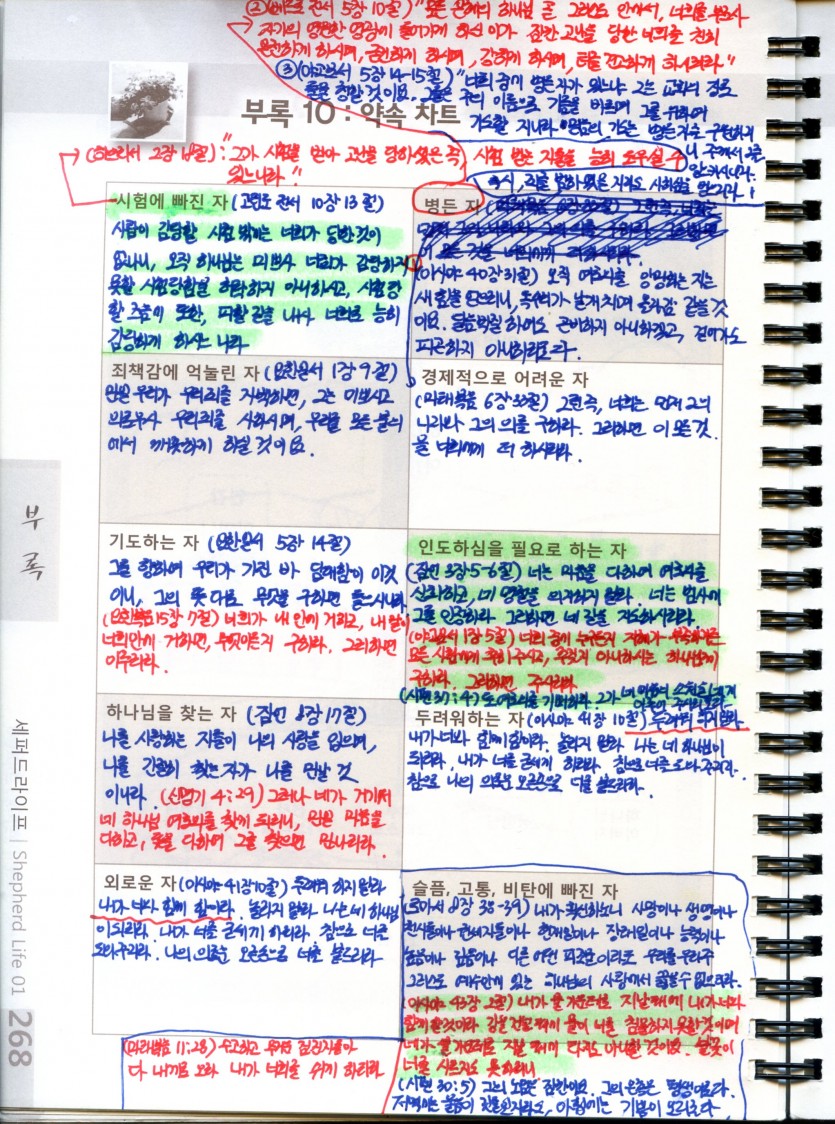 ②(베드로 전서 5장 10절) "모든 은혜의 하나님 곧 그리스도 안에서, 너희를 부르사
자기의 영원한 영광에 들어가게 하신 이가 잠깐 고난을 당한 너희를 친히
온전하게 하시며, 굳건하게 하시며, 강하게 하시며, 터를 견고하게 하시리라."
③(야고보서 5장 14-15절) "너희 중에 병든 자가 있느냐 그는 교회의 장로
들을 청할 것이요. 그들은 주의 이름으로 기름을 바르며 그를 위하여
기도할 지니라. 믿음의 기도는 병든 자를 구원하리
니 주께서 그를
일으키시리라.
혹시, 죄를 범하였을 지라도 사하심을 받으리라.
부록 10 : 약속 차트
(히브리서 2장 18절): "그가 시험을 받아 고난을 당하셨은즉 시험 받는 자들을 능히 도우실 수
있느니라."
시험에 빠진 자 (고린도 전서 10장 13절)
사람이 감당할 시험 밖에는 너희가 당한 것이
없나니, 오직 하나님은 미쁘사 너희가 감당하지
못할 시험당함을 허락하지 아니하시고, 시험 당
할 즈음에 또한, 피할 길을 내사 너희로 능히
감당하게 하시느니라
병든 자
①(이사야 40장 31절) 오직 여호와를 앙망하는 자는
새 힘을 얻으리니, 독수리가 날개치며 올라감 같을 것
이요. 달음박질 하여도 곤비하지 아니하겠고, 걸어가도
피곤하지 아니하리로다.
죄책감에 억눌린 자 (요한일서 1장 9절)
만일 우리가 우리 죄를 자백하면, 그는 미쁘시고
의로우사 우리 죄를 사하시며, 우리를 모든 불의
에서 깨끗하게 하실 것이요.
경제적으로 어려운 자
(마태복음 6장 33절) 그런즉, 너희는 먼저 그의
나라와 그의 의를 구하라. 그리하면 이 모든 것
을 너희에게 더 하시리라.
기도하는 자 (요한일서 5장 14절)
그를 향하여 우리가 가진 바 담대함이 이것
이니, 그의 뜻대로 무엇을 구하면 들으시나니
(요한복음 15장 7절) 너희가 내 안에 거하고, 내 말이
너희 안에 거하면, 무엇이든지 구하라. 그리하면
이루리라.
인도하심을 필요로 하는 자
(잠언 3장 5-6절) 너는 마음을 다하여 여호와를
신뢰하고, 네 명철을 의지하지 말라. 너는 범사에
그를 인정하라. 그리하면 네 길을 지도하시리라.
(야고보서 1장 5절) 너희 중에 누구든지 지혜가 부족하거든
모든 사람에게 후히 주시고, 꾸짖지 아니하시는 하나님께
구하라. 그리하면 주시리라.
(시편 37:4) 또 여호와를 기뻐하라. 그가 네 마음의 소원을 네게
이루어 주시리로다.
하나님을 찾는 자 (잠언 8장 17절)
나를 사랑하는 자들이 나의 사랑을 입으며,
나를 간절히 찾는 자가 나를 만날 것
이니라. (신명기 4:29) 그러나 네가 거기서
네 하나님 여호와를 찾게 되리니, 만일 마음을
다하고, 뜻을 다하여 그를 찾으면 만나리라.
두려워하는 자 (이사야 41장 10절) 두려워 하지 말라
내가 너와 함께 함이라. 놀라지 말라 나는 네 하나님이
되리라. 내가 너를 굳세게 하리라. 참으로 너를 도와 주리라.
참으로 나의 의로운 오른손으로 너를 붙드리라.
외로운 자 (이사야 41장 10절) 두려워 하지 말라
내가 너와 함께 함이라. 놀라지 말라 나는 네 하나님
이 되리라. 내가 너를 굳세게 하리라. 참으로 너를
도와주리라. 나의 의로운 오른손으로 너를 붙드리라
슬픔, 고통, 비탄에 빠진 자
(로마서 8장 38-39) 내가 확신하노니 사망이나 생명이나
천사들이나 권세자들이나 현재일이나 장래일이나 능력이나
높음이나 깊음이나 다른 어떤 피조물이라도 우리를 우리 주
그리스도 예수 안에 있는 하나님의 사랑에서 끊을 수 없으리라.
(이사야 43장 2절) 네가 물 가운데로 지날 때에 내가 너와
함께 할 것이라. 강을 건널 때에 물이 너를 침몰하지 못할 것이며
네가 불 가운데로 지날 때에 타지도 아니할 것이요. 불꽃이
너를 사르지도 못하리니
(시편 30:5) 그의 노염은 잠깐이요. 그의 은총은 평생이로다.
저녁에는 울음이 깃들일지라도, 아침에는 기쁨이 오리로다
(마태복음 11:28) 수고하고 무거운 짐진 자들아
다 내게로 오라 내가 너희를 쉬게 하리라
부록
셰퍼드라이프 | Shepherd Life 01
268